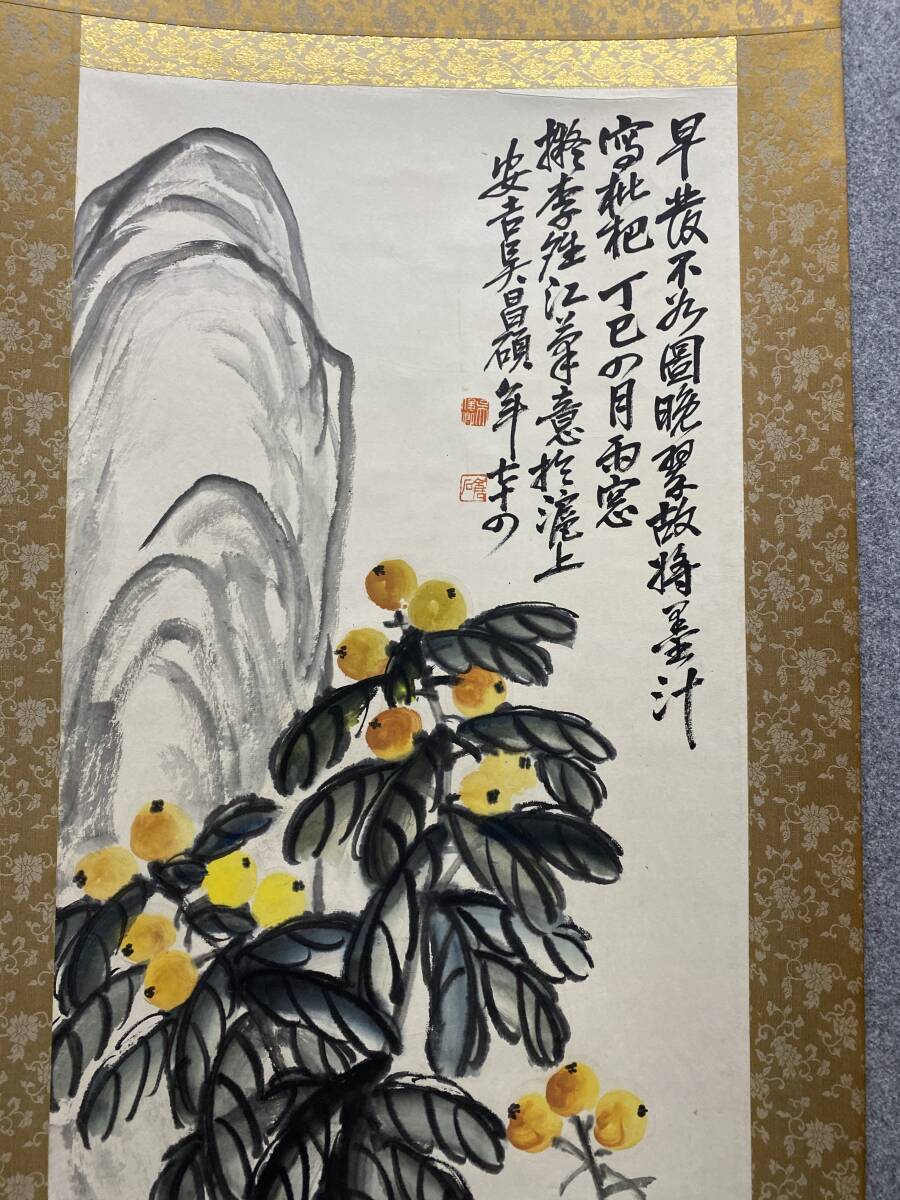 早發不如圖晚翠故將墨汁
寫枇杷丁巳四月雨窓
擬李復江筆意於滬上
安吉吳昌碩年七十四